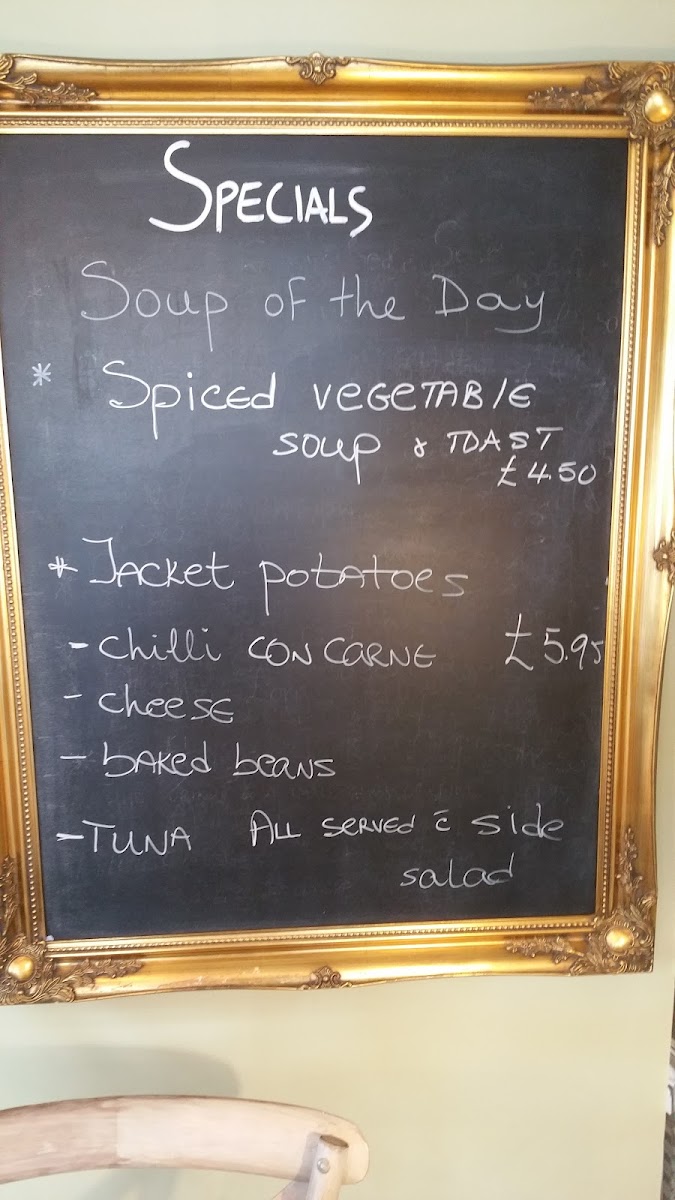 SPECIALS
Soup of the Day
* Spiced vegetable
soup & TOAST
£4.50
* Jacket potatoes
- chilli con carne £5.95
- cheese
- baked beans
- TUNA All served c̄ side
salad